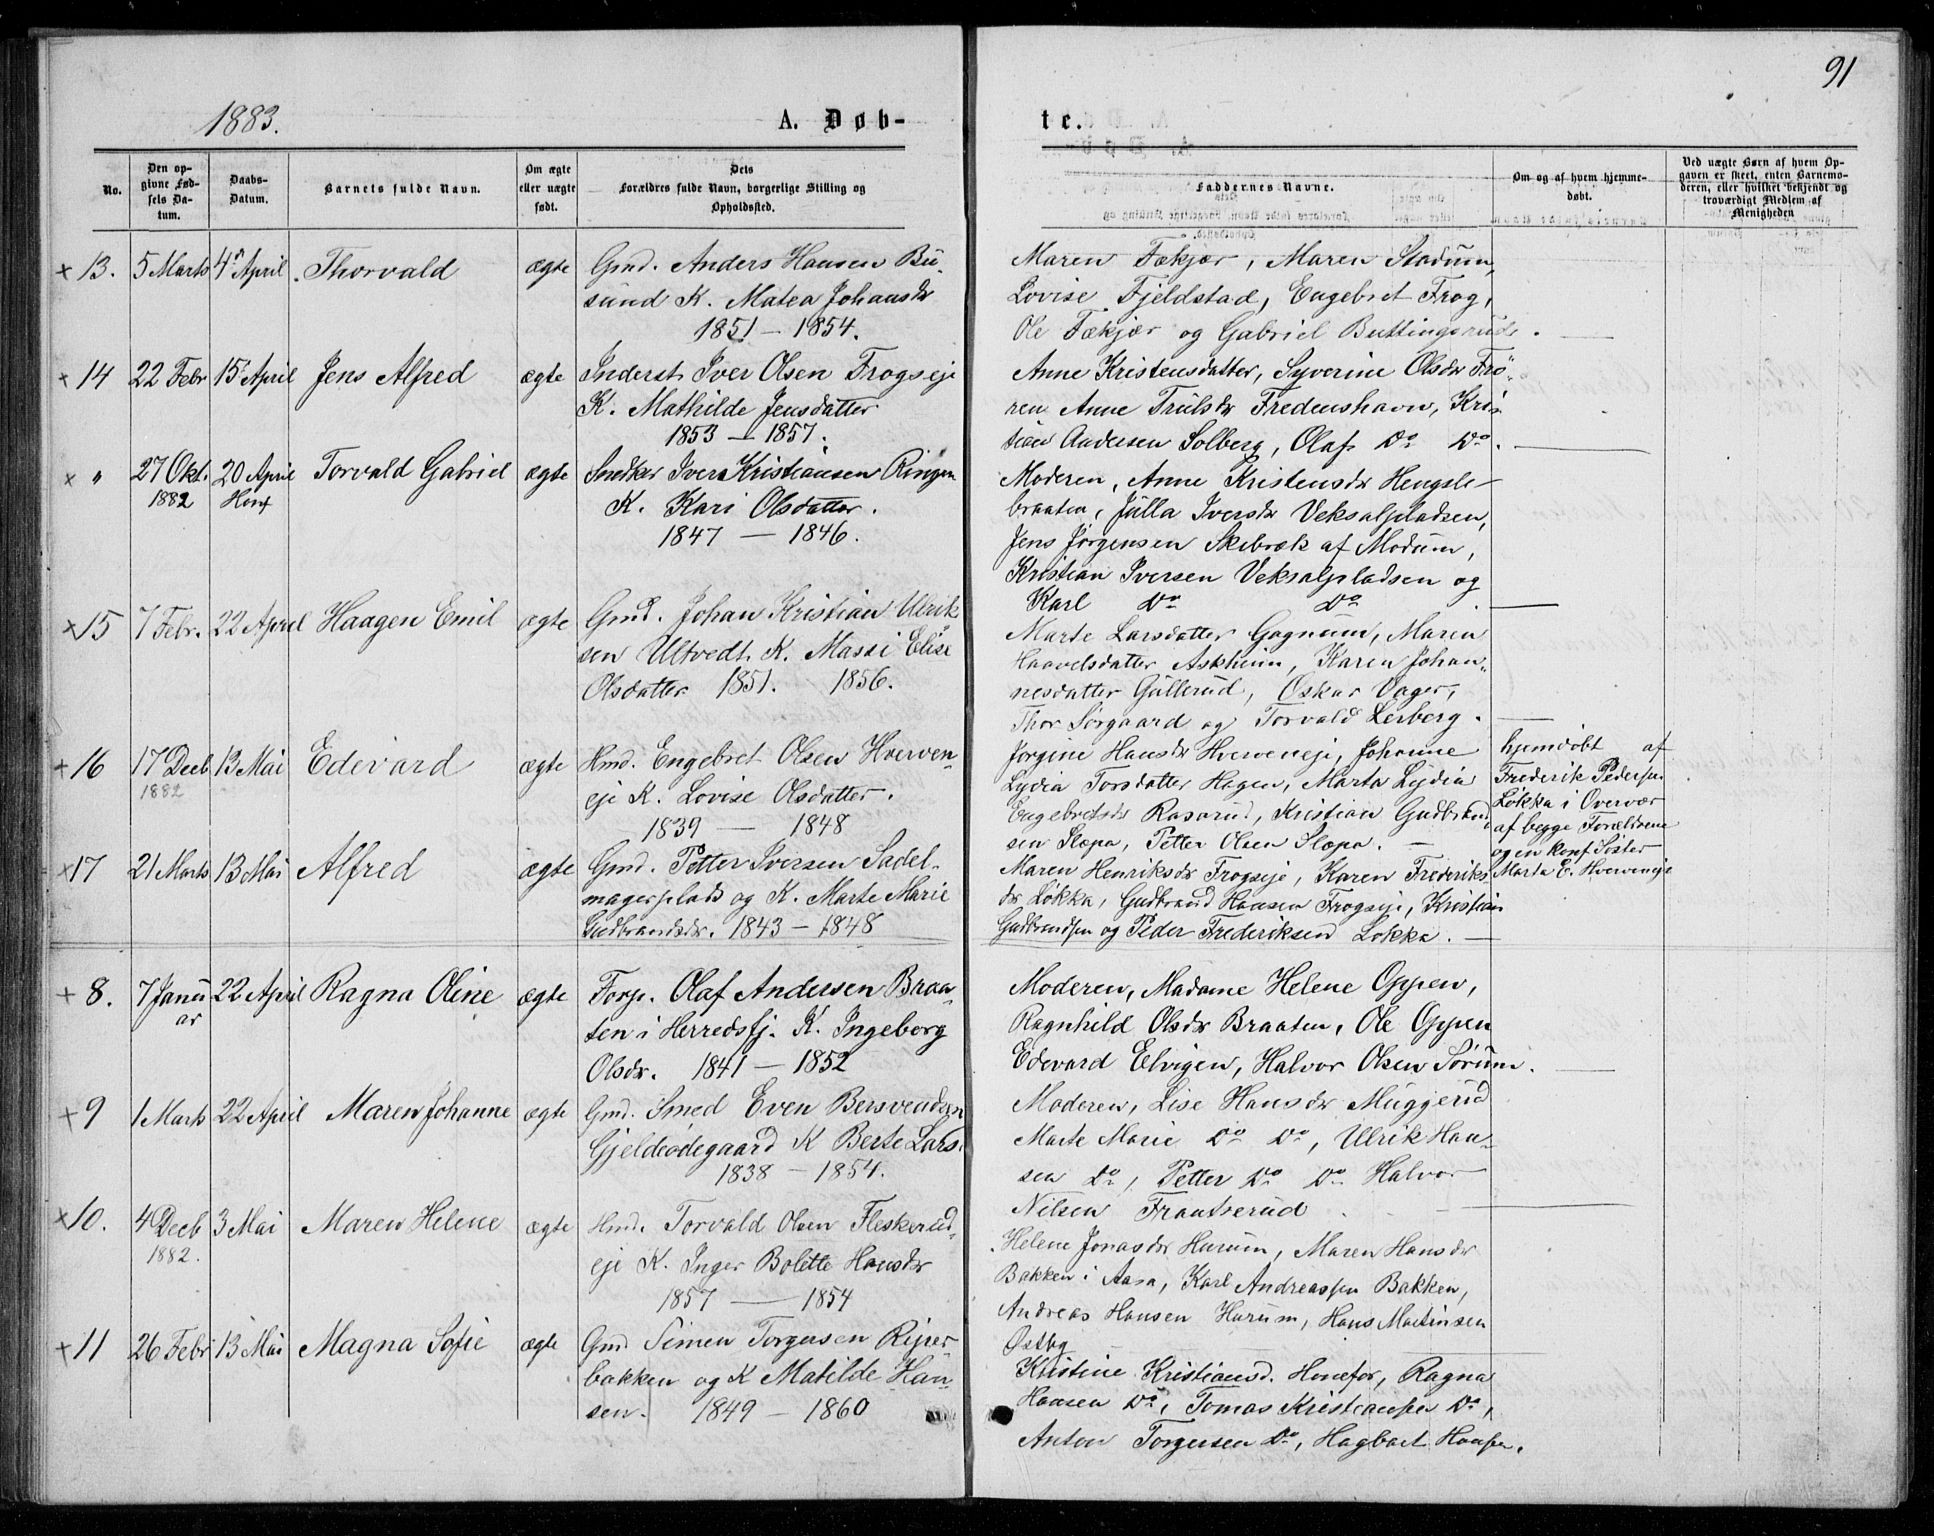 91
1883.
A. Døb-
te.
No.
Den op-
givne Fød-
sels Da-
tum.
Daabs-
Datum.
Barnets fulde Navn.
Om ægte
eller uægte
født.
Dets
Forældres fulde Navn, borgerlige Stilling og
Opholdssted.
Faddernes Navne.
Om og af hvem hjemme-
døbt.
Ved uægte Børn af hvem Op-
gaven er skeet, enten Barnemo-
deren, eller hvilket bekjendt og
troværdigt Medlem af
Menigheden
× 13. 5 Marts 4de April Thorvald ægte Gmd. Anders Hansen Bu-
sund K. Matea Johansdr
1851 – 1854.
Maren Fækjær, Maren Stadum,
Lovise Fjeldstad, Engebret Frog,
Ole Fækjær og Gabriel Buttingsrud.
× 14 22 Febr 15 April Jens Alfred ægte Inderst Iver Olsen Frogseje
K. Mathilde Jensdatter
1853 – 1857.
Anne Kristensdatter, Syverine Olsdr Frö-
ren Anne Trulsdr Fredenshavn, Kris
tian Andersen Solberg, Olaf Do Do.
× " 27 Okt. 20 April Torvald Gabriel ægte Snedker Iver Kristiansen Ringen
1882 Honf
K. Kari Olsdatter.
1847 – 1846.
Moderen, Anne Kristensdr Hengsle-
braaten, Julla Iversdr Veksalpladsen,
Jens Jørgensen Skibræk af Modum,
Kristian Iversen Veksalpladsen og
Karl Do Do.
× 15 7 Febr. 22 April Haagen Emil ægte Gmd. Johan Kristian Ulrik
sen Ultvedt K. Massi Elise
Olsdatter 1851. 1856.
Marte Larsdatter Gagnum, Maren
Haavelsdatter Askheim, Karen Johan-
nesdatter Gullerud, Oskar Vager,
Thor Sørgaard og Torvald Lerberg.
+ 16 17 Decb 13 Mai Edevard ægte Hmd. Engebret Olsen Hverven-
1882
eje K. Lovise Olsdatter.
1839 – 1848
Jorgine Hansdr Hverveneje, Johanne
Lydia Torsdatter Hagen, Marta Lydia
Engebretsdr Rasarud, Kristian Gudbrand
sen Slæpa, Petter Olsen Slæpa. –
hjemdøbt af
Frederik Pedersen
Løkka i Overvær
af begge Forældrene
og en konf Søster
Marta E. Hverveneje
× 17 21 Marts 13 Mai Alfred ægte Gmd. Petter Iversen Sadel-
magerplads og K. Marte Marie
Gudbrandsdr. 1843 – 1848
Maren Henriksdr Frogseje, Karen Frederiks
dr Løkka, Gudbrand Hansen Frogseje, Kristian
Gudbrandsen og Peder Frederiksen Løkka. –
+ 8. 7 Janu 22 April Ragna Oline ægte Forp. Olaf Andersen Braa-
ar
ten i Herredsfj. K. Ingeborg
Olsdr. 1841 – 1852
Moderen, Madame Helene Oppen,
Ragnhild Olsdr Braaten, Ole Oppen
Edevard Elvigen, Halvor Olsen Sørum.
+ 9 1 Marts 22 April Maren Johanne ægte Gmd. Smed Even Bersvendsen
Gjeldeødegaard K Berte Lars.
1838 – 1854.
Moderen, Lise Hansdr Muggerud
Marte Marie Do Do, Ulrik Han-
sen Do, Petter Do Do Halvor
Nilsen Frantserud
× 10. 4 Decb 3 Mai Maren Helene ægte Hmd. Torvald Olsen Fleskerud-
1882.
eje K. Inger Bolette Hansdr
1857 – 1854
Helene Jonasdr Hurum, Maren Hansdr
Bakken i Aasa, Karl Andreassen Bakken,
Andreas Hansen Hurum, Hans Martinsen
Østby
+ 11 26 Febr 13 Mai Magna Sofie ægte Gmd. Simen Torgersen Riper-
bakken og K Matilde Han-
sen. 1849 – 1860
Kristine Kristiansd. Honefos, Ragna
Hansen Do, Tomas Kristiansen Do,
Anton Torgersen Do, Hagbart Hansen.